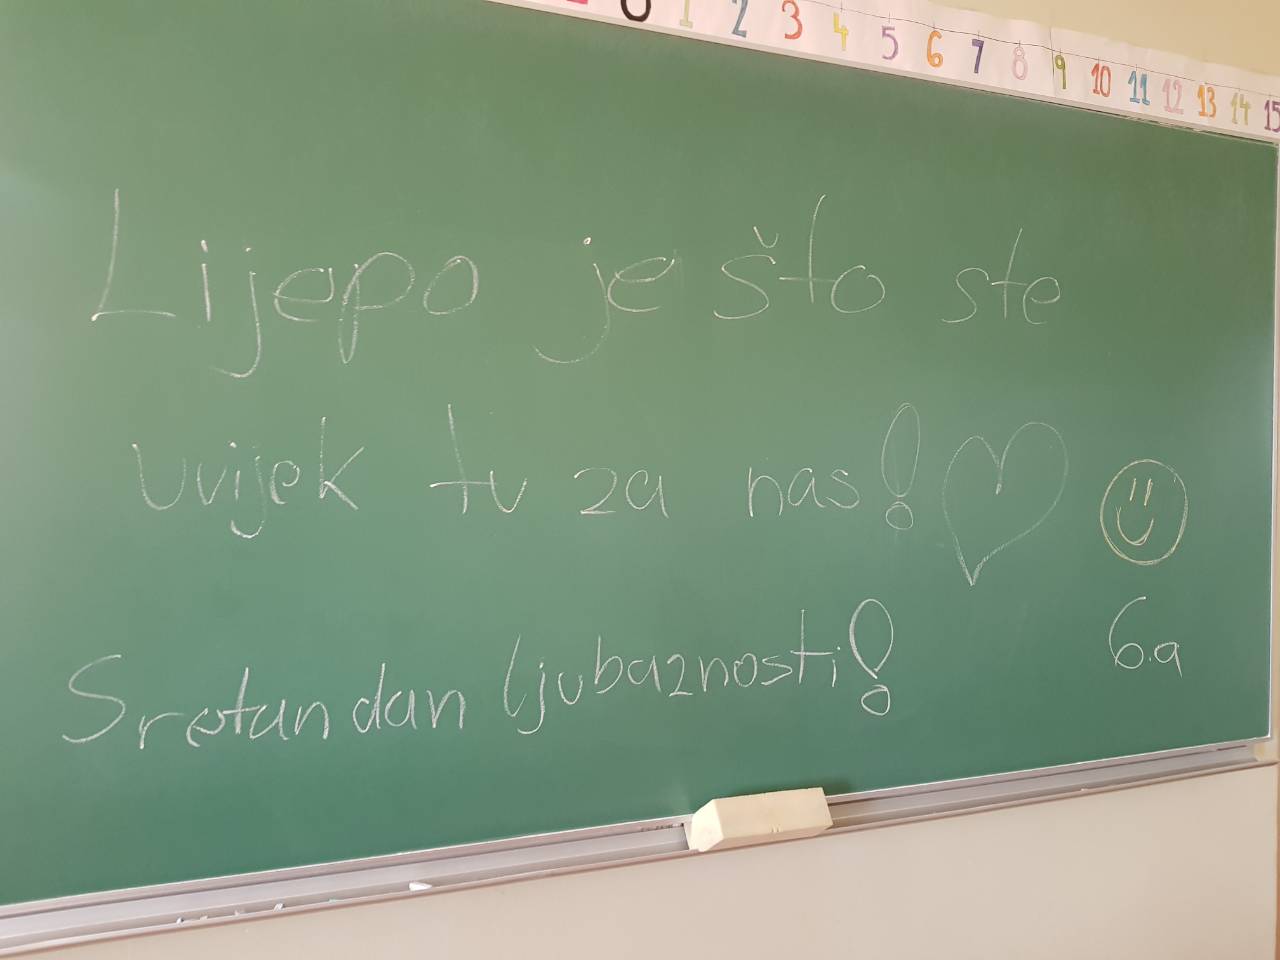 0 1 2 3 4 5 6 7 8 9 10 11 12 13 14 15
Lijepo je što ste
uvijek tu za nas!
Sretan dan ljubaznosti!
6.a